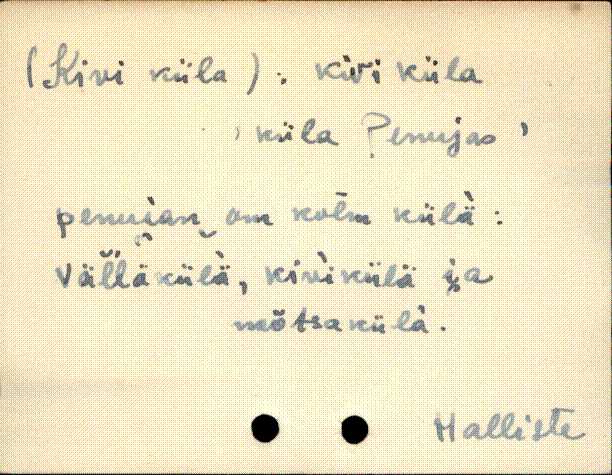 (Kivi küla): kivi küla
'küla Penujas'
penujan om kolm külä:
Vällākülà, kivìkülä ja
mõtsakülà.
Halliste